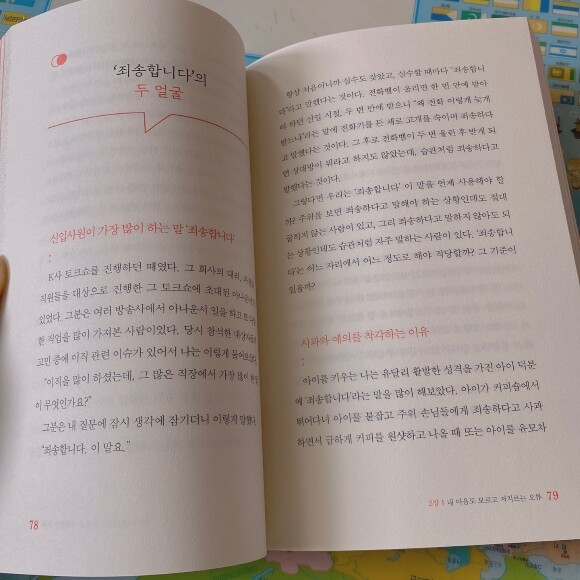 '죄송합니다'의
두 얼굴
신입사원이 가장 많이 하는 말 '죄송합니다'
K사 토크쇼를 진행하던 때였다. 그 회사의 대리,
직원들을 대상으로 진행한 그 토크쇼에 초대된
있었다. 그분은 여러 방송사에서 아나운서 일을 하고
한 직업을 많이 가져본 사람이었다. 당시 참석한
고민 중에 이직 관련 이슈가 있어서 나는 이렇게
"이직을 많이 하셨는데, 그 많은 직장에서 가장 많이
이 무엇인가요?"
그분은 내 질문에 잠시 생각에 잠기더니 이렇게
"죄송합니다. 이 말요."
78
항상 처음이니까 실수도 잦았고, 실수할 때마다 "죄송합니
다"라고 말했다는 것이다. 전화벨이 울리면 한 번 만에 받아
야 하던 신입 시절, 두 번 만에 받으니 "왜 전화 이렇게 늦게
받느냐"라는 말에 전화기를 든 채로 고개를 숙이며 죄송하다
고 말했다는 것이다. 그 후로 전화벨이 두 번 울린 후 받게 되
면 상대방이 뭐라고 하지도 않았는데, 습관처럼 죄송하다고
말했다는 것이다.
그렇다면 우리는 '죄송합니다' 이 말을 언제 사용해야 할
까? 주위를 보면 죄송하다고 말해야 하는 상황인데도 절대
굽히지 않는 사람이 있고, 그리 죄송하다고 말하지 않아도 되
는 상황인데도 습관처럼 자주 말하는 사람이 있다. '죄송합니
다'는 어느 자리에서 어느 정도로 해야 적당할까? 그 기준이
있을까?
사과와 예의를 착각하는 이유
아이를 키우는 나는 유달리 활발한 성격을 가진 아이 덕분
에 '죄송합니다'라는 말을 많이 해보았다. 아이가 커피숍에서
뛰어다녀 아이를 붙잡고 주위 손님들에게 죄송하다고 사과
하면서 급하게 커피를 원샷하고 나올 때 또는 아이를 유모차
2장 내 마음도 모르고 저지르는 오류 79